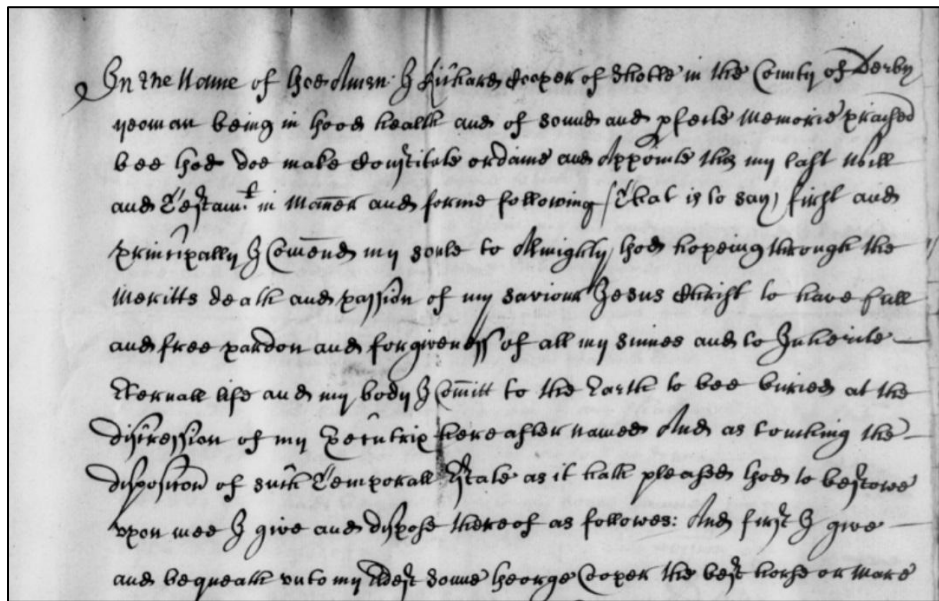 In the Name of God Amen. I Richard Cooper of Tholle in the County of Derby
yeoman being in good health and of sound and pfecte Memorie praised
bee God doe make Constitute ordaine and Appointe this my last Will
and Testamt. in Maner and forme following (That is to say) first and
principally I Comend my soule to Almighty God hopeing through the
Meritts death and passion of my saviour Jesus Christ to have full
and free pardon and forgiveness of all my sinnes and to Inherite
Eternall life and my body I Comitt to the Earth to bee buried at the
discression of my Executrix hereafter named And as touching the
disposicon of such Temporall Estate as it hath pleased God to bestowe
vpon mee I give and dispose thereof as followes: And first I give
and bequeath vnto my Eldest sonne George Cooper the best horse or Mare